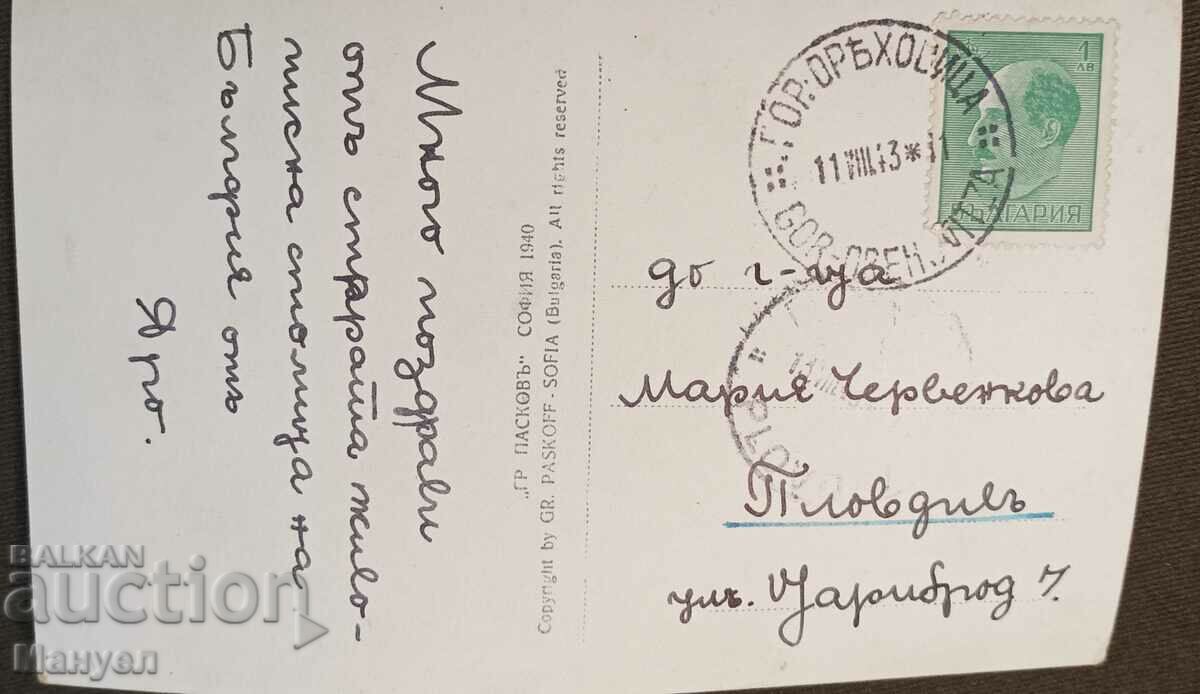 Много поздрави
отъ старата живо-
писна столица на
България отъ
Яро.
„ГР ПАСКОВЪ" СОФИЯ 1940
Copyright by GR. PASKOFF - SOFIA (Bulgaria). All rights reserved
ГОР. ОРѢХОВИЦА
11 VIII 43 * 11
GOR-OREH
1 ЛВ
БЪЛГАРИЯ
до г-ца
Мария Червенкова
Пловдивъ
ул. Цариброд 7.
BALKAN
auction
Мануел